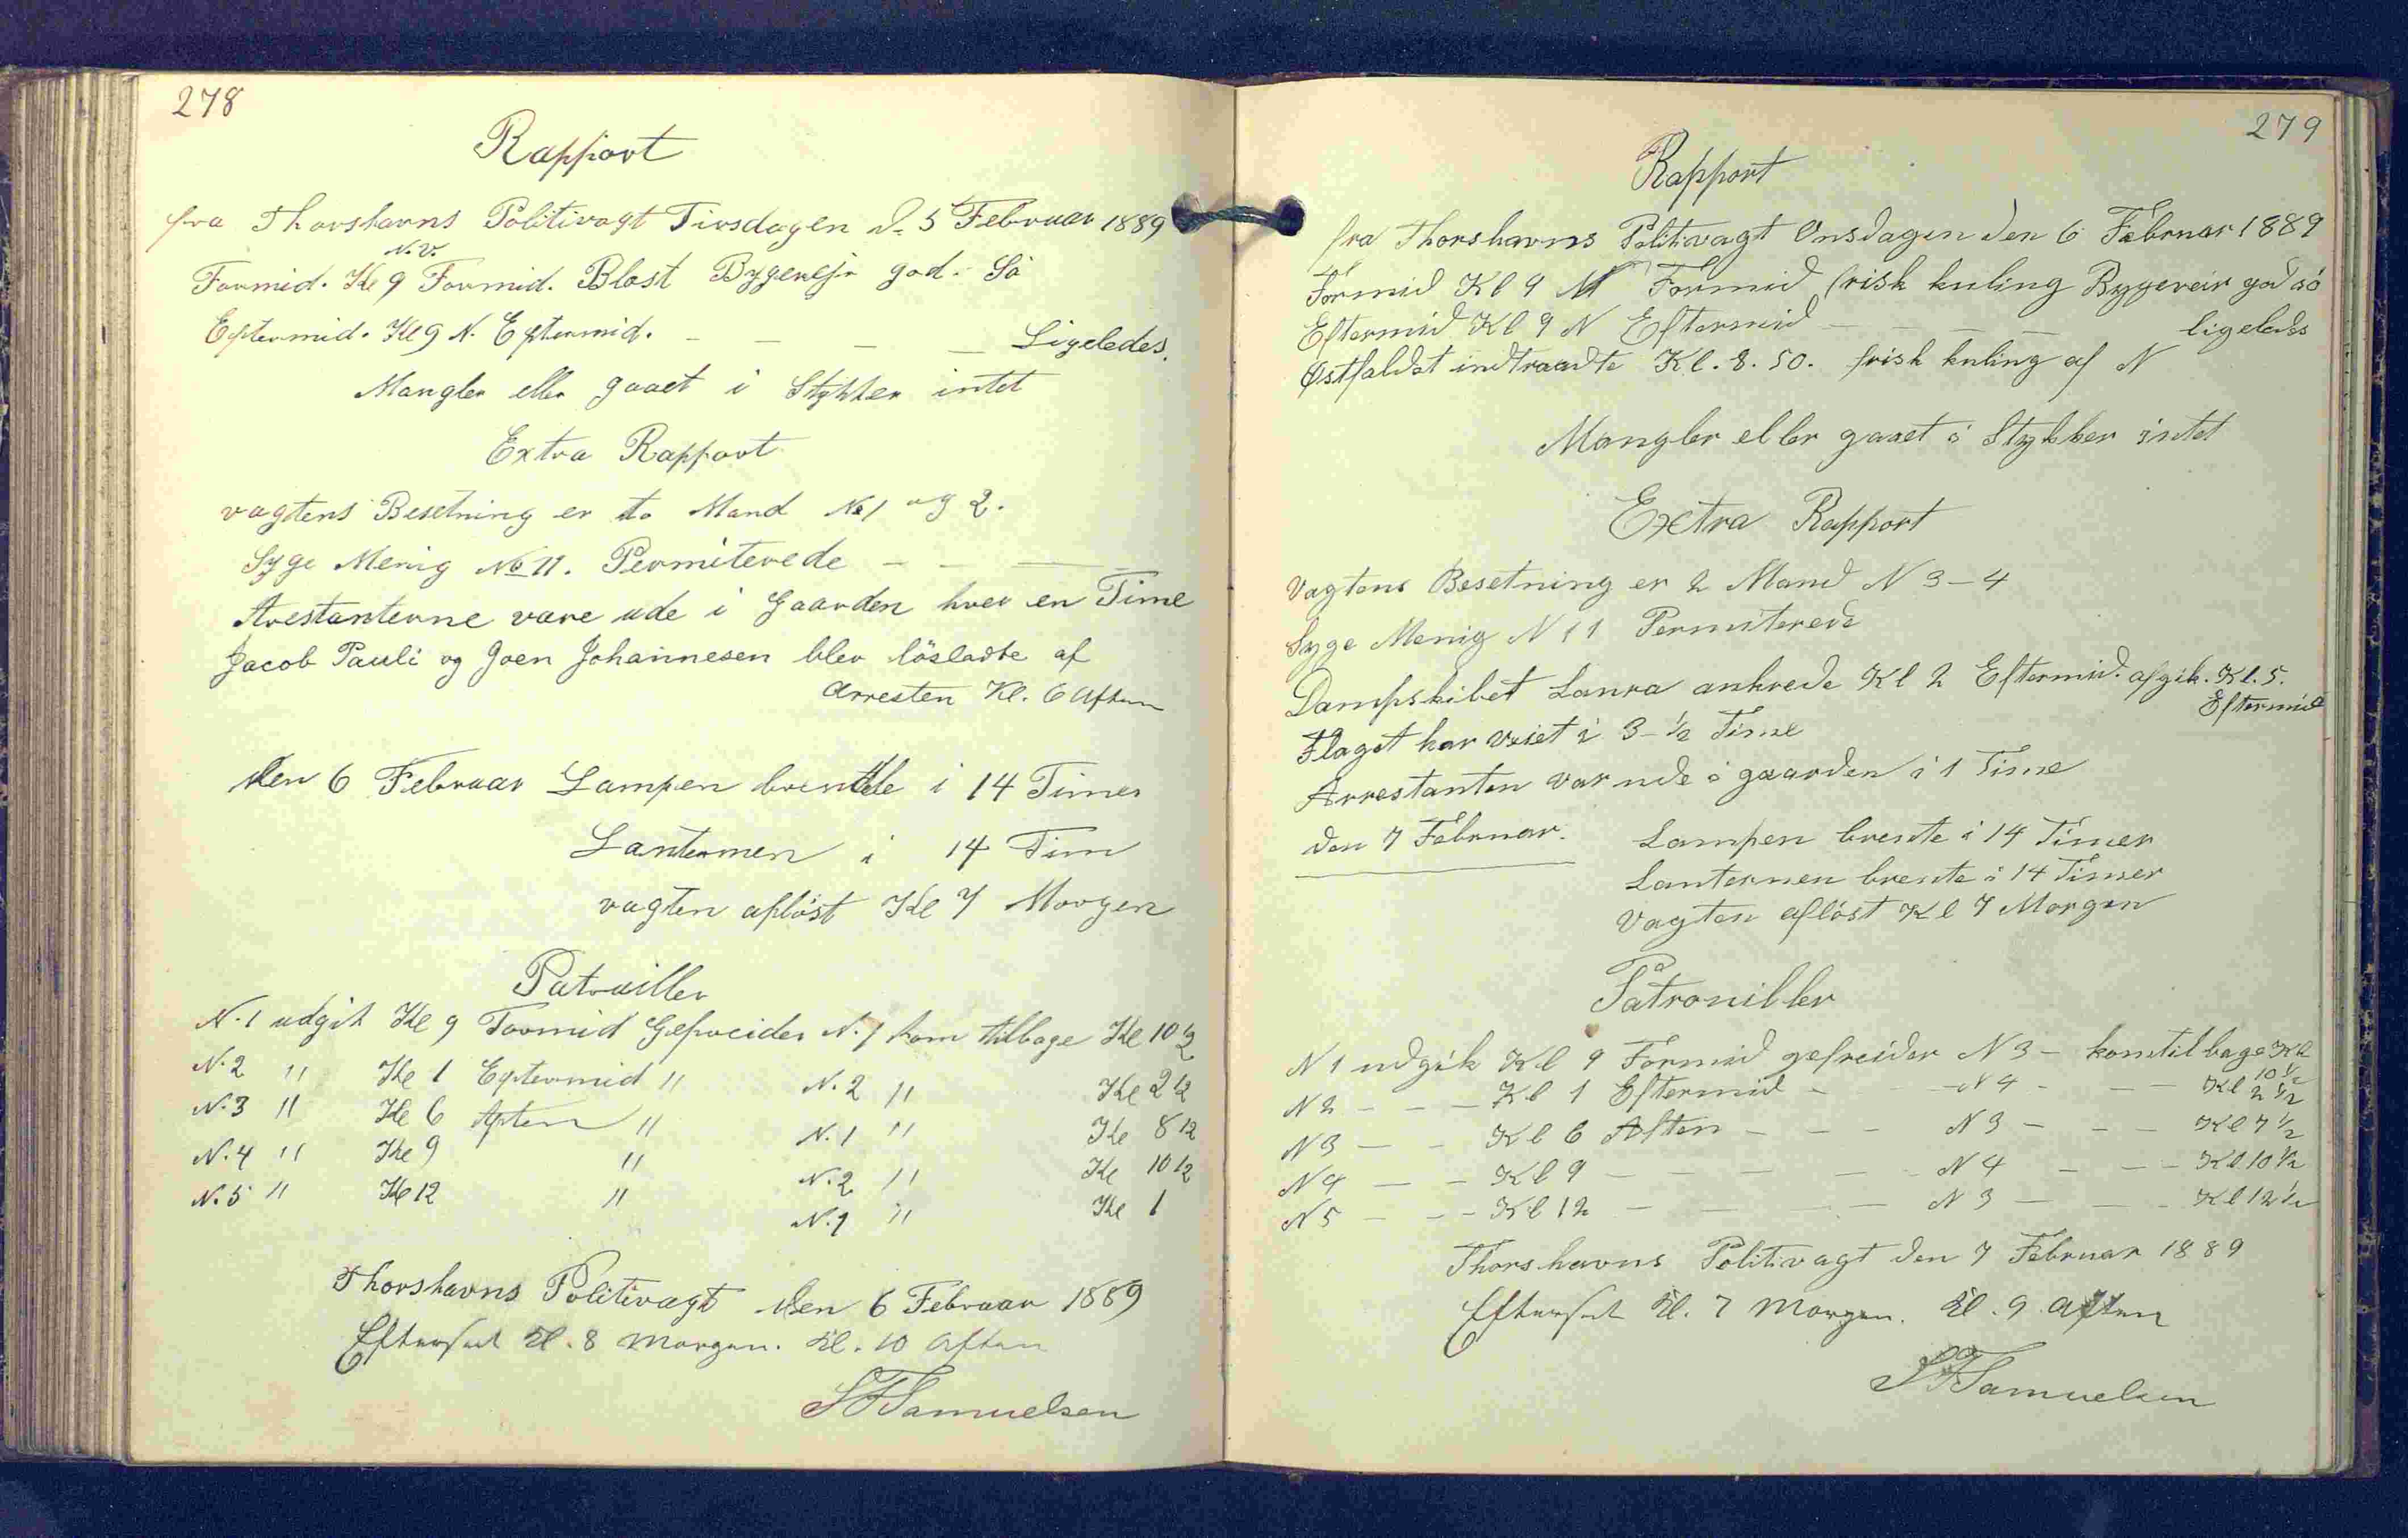 278
Rapport
fra Thorshavns Politivagt Tirsdagen d. 5 Februar 1889
N.V.
Formid. Kl 9 Formid. Blæst Bygevejr god. Sö
Eftermid. Kl 9 N. Eftermid. — — — — Ligeledes.
Mangler eller gaaet i Stykker intet
Extra Rapport
vagtens Besetning er to Mand No 1 og 2.
Syge Menig No 11. Permiterede — — —
Arestanterne vare ude i Gaarden hver en Time
Jacob Pauli og Joen Johannesen blev lösladte af
Arresten Kl. 6 Aften
den 6 Februar Lampen brendte i 14 Timer
Lanternen i 14 Tim
vagten aflöst Kl 7 Morgen
Patruiller
N. 1 udgik Kl 9 Formid Gefreider N. 1 kom tilbage Kl 10 1/2
N. 2 " Kl 1 Eftermid " N. 2 " Kl 2 1/2
N. 3 " Kl 6 Aften " N. 1 " Kl 8 1/2
N. 4 " Kl 9 " N. 2 " Kl 10 1/2
N. 5 " Kl 12 " N. 1 " Kl 1
Thorshavns Politivagt den 6 Februar 1889
Efterset Kl. 8 Morgen. Kl. 10 Aften
SFSamuelsen
279
Rapport
fra Thorshavns Politivagt Onsdagen den 6 Februar 1889
Formid Kl 9 N Formid frisk kuling Bygeveir god sö
Eftermid Kl 9 N Eftermid — — — — ligeledes
Östfaldet indtraadte Kl. 8. 50. frisk kuling af N
Mangler eller gaaet i Stykker intet
Extra Rapport
Vagtens Besetning er 2 Mand N 3 - 4
Syge Menig N 11 Permiterede
Dampskibet Laura ankrede Kl 2 Eftermid. afgik. Kl. 5.
Eftermid
Flaget har veiet i 3 - 1/2 Time
Arrestanten var ude i gaarden i 1 Time
den 7 Februar. Lampen brente i 14 Timer
Lanternen brente i 14 Timer
Vagten aflöst Kl 7 Morgen
Patrouiller
N 1 udgik Kl 9 Formid gefreider N 3 - kom tilbage Kl
10 1/2
N 2 — — — Kl 1 Eftermid — — N 4 — — — Kl 2 1/2
N 3 — — Kl 6 Aften — — — N 3 — — — Kl 7 1/2
N 4 — — Kl 9 — — — — N 4 — — — Kl 10 1/2
N 5 — — — Kl 12 — — — N 3 — — — Kl 12 1/2
Thorshavns Politivagt den 7 Februar 1889
Efterset Kl. 7 Morgen. Kl. 9. Aften
SFSamuelsen